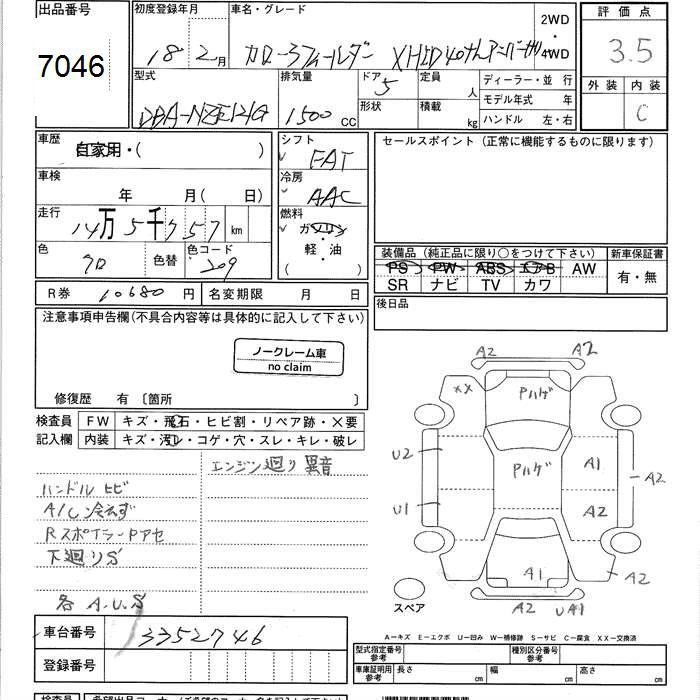 出品番号
7046
初度登録年月 18 2月
車名・グレード カローラフィールダー XHID40thアニバーサリ
2WD・4WD
評価点 3.5
外装 内装 C
型式 DBA-NZE121G
排気量 1500 CC
ドア 5 形状
定員 人 積載 kg
ディーラー・並行
モデル年式 年
ハンドル 左・右
車歴 自家用・( )
車検 年 月( 日)
走行 14万5千757 km
色 クロ 色替 色コード 209
シフト FAT
冷房 AAC
燃料 ガソリン
軽・油
( )
セールスポイント(正常に機能するものに限ります)
装備品(純正品に限り○をつけて下さい) 新車保証書
PS PW ABS エアB AW 有・無
SR ナビ TV カワ
R券 10680 円 名変期限 月 日
後日品
注意事項申告欄(不具合内容等は具体的に記入して下さい)
ノークレーム車
no claim
修復歴 有 〔箇所 〕
検査員 FW キズ・飛石・ヒビ割・リペア跡・×要
記入欄 内装 キズ・汚レ・コゲ・穴・スレ・キレ・破レ
エンジン廻り異音
ハンドル ヒビ
A/C冷えず
RスポイラーPアセ
下廻りS
各 A.U.S
A2 A2
XX Pハゲ
U2 Pハゲ A1 A2
U1 A2
A1 A2
スペア A2 UA1
車台番号 3352746
登録番号
A−キズ E−エクボ U−凹み W−補修跡 S−サビ C−腐食 XX−交換済
型式指定番号 参考 種別区分番号 参考
車庫証明用 参考 長さ cm 幅 cm 高さ cm